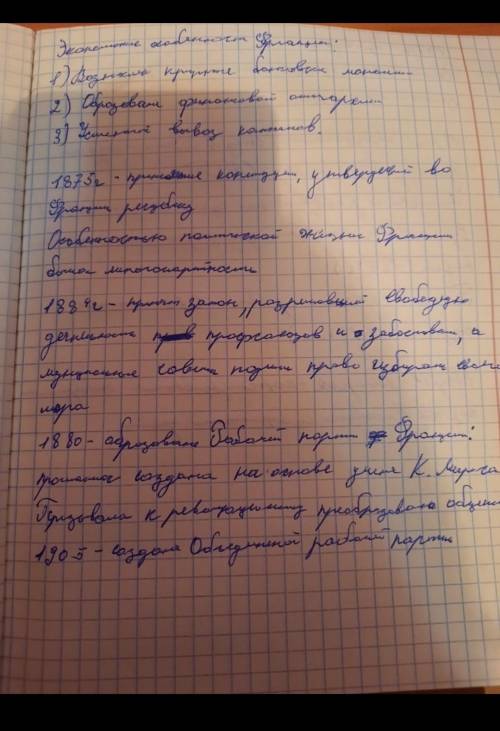 Экономические особенности Франции:
1) Возникли крупные банковские монополии
2) Образование финансовой олигархии
3) Усиленный вывоз капиталов.
1875г - принятие конституции, утвердивший во
Франции республику
Особенностью политической жизни Франции
была многопартийность
1884г - принят закон, разрешивший свободную
деятельность профсоюзов и забастовки, а
муниципальные советы получили право избирать своего
мэра
1880 - образование Рабочей партии Франции:
программа создана на основе учения К. Маркса
Призывала к революционному преобразованию общества
1905 - создана Объединенной рабочей партии